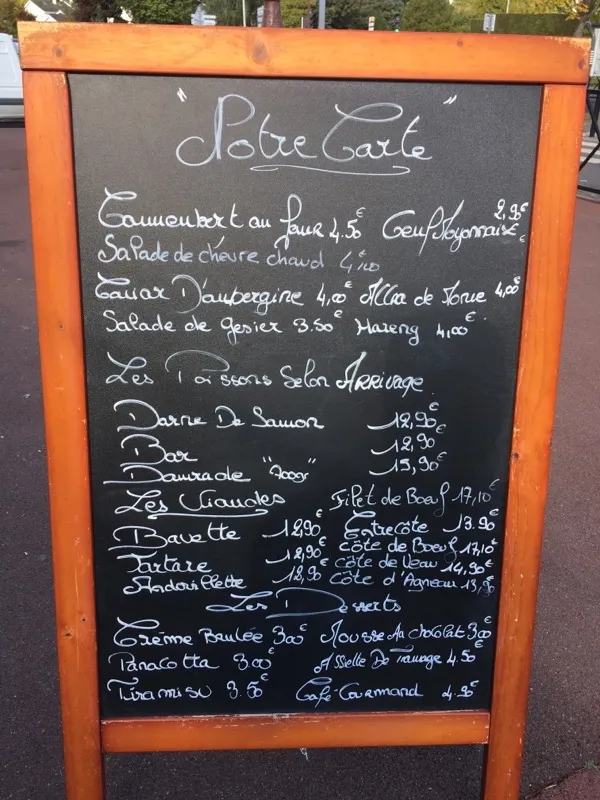 "Notre Carte"
Camembert au four 4.50€ Oeuf Mayonnaise 2,90€
Salade de chévre chaud 4€00
Caviar D'aubergine 4,00€ de Morue 4,00€
Salade de Gesier 3.50€ Hareng 4,00€
Les Poissons Selon ARRivage
Darne De Saumon 12,90€
Bar 12,90€
Daurade "700gr" 15,90€
Les Viandes Filet de Boeuf 17,10€
Bavette 12,90€ Entrecôte 13.90€
Tartare 12,90€ côte de Boeuf 17,10€
Andouillette 12,90€ côte de Veau 14,90€
côte d'Agneau 13,90€
Les Desserts
Créme Brulée 3,00€ Mousse Au chocolat 3,00€
Panacotta 3,00€ Assiette De Fromage 4.50€
Tiramisu 3.50€ Café Gourmand 4.90€